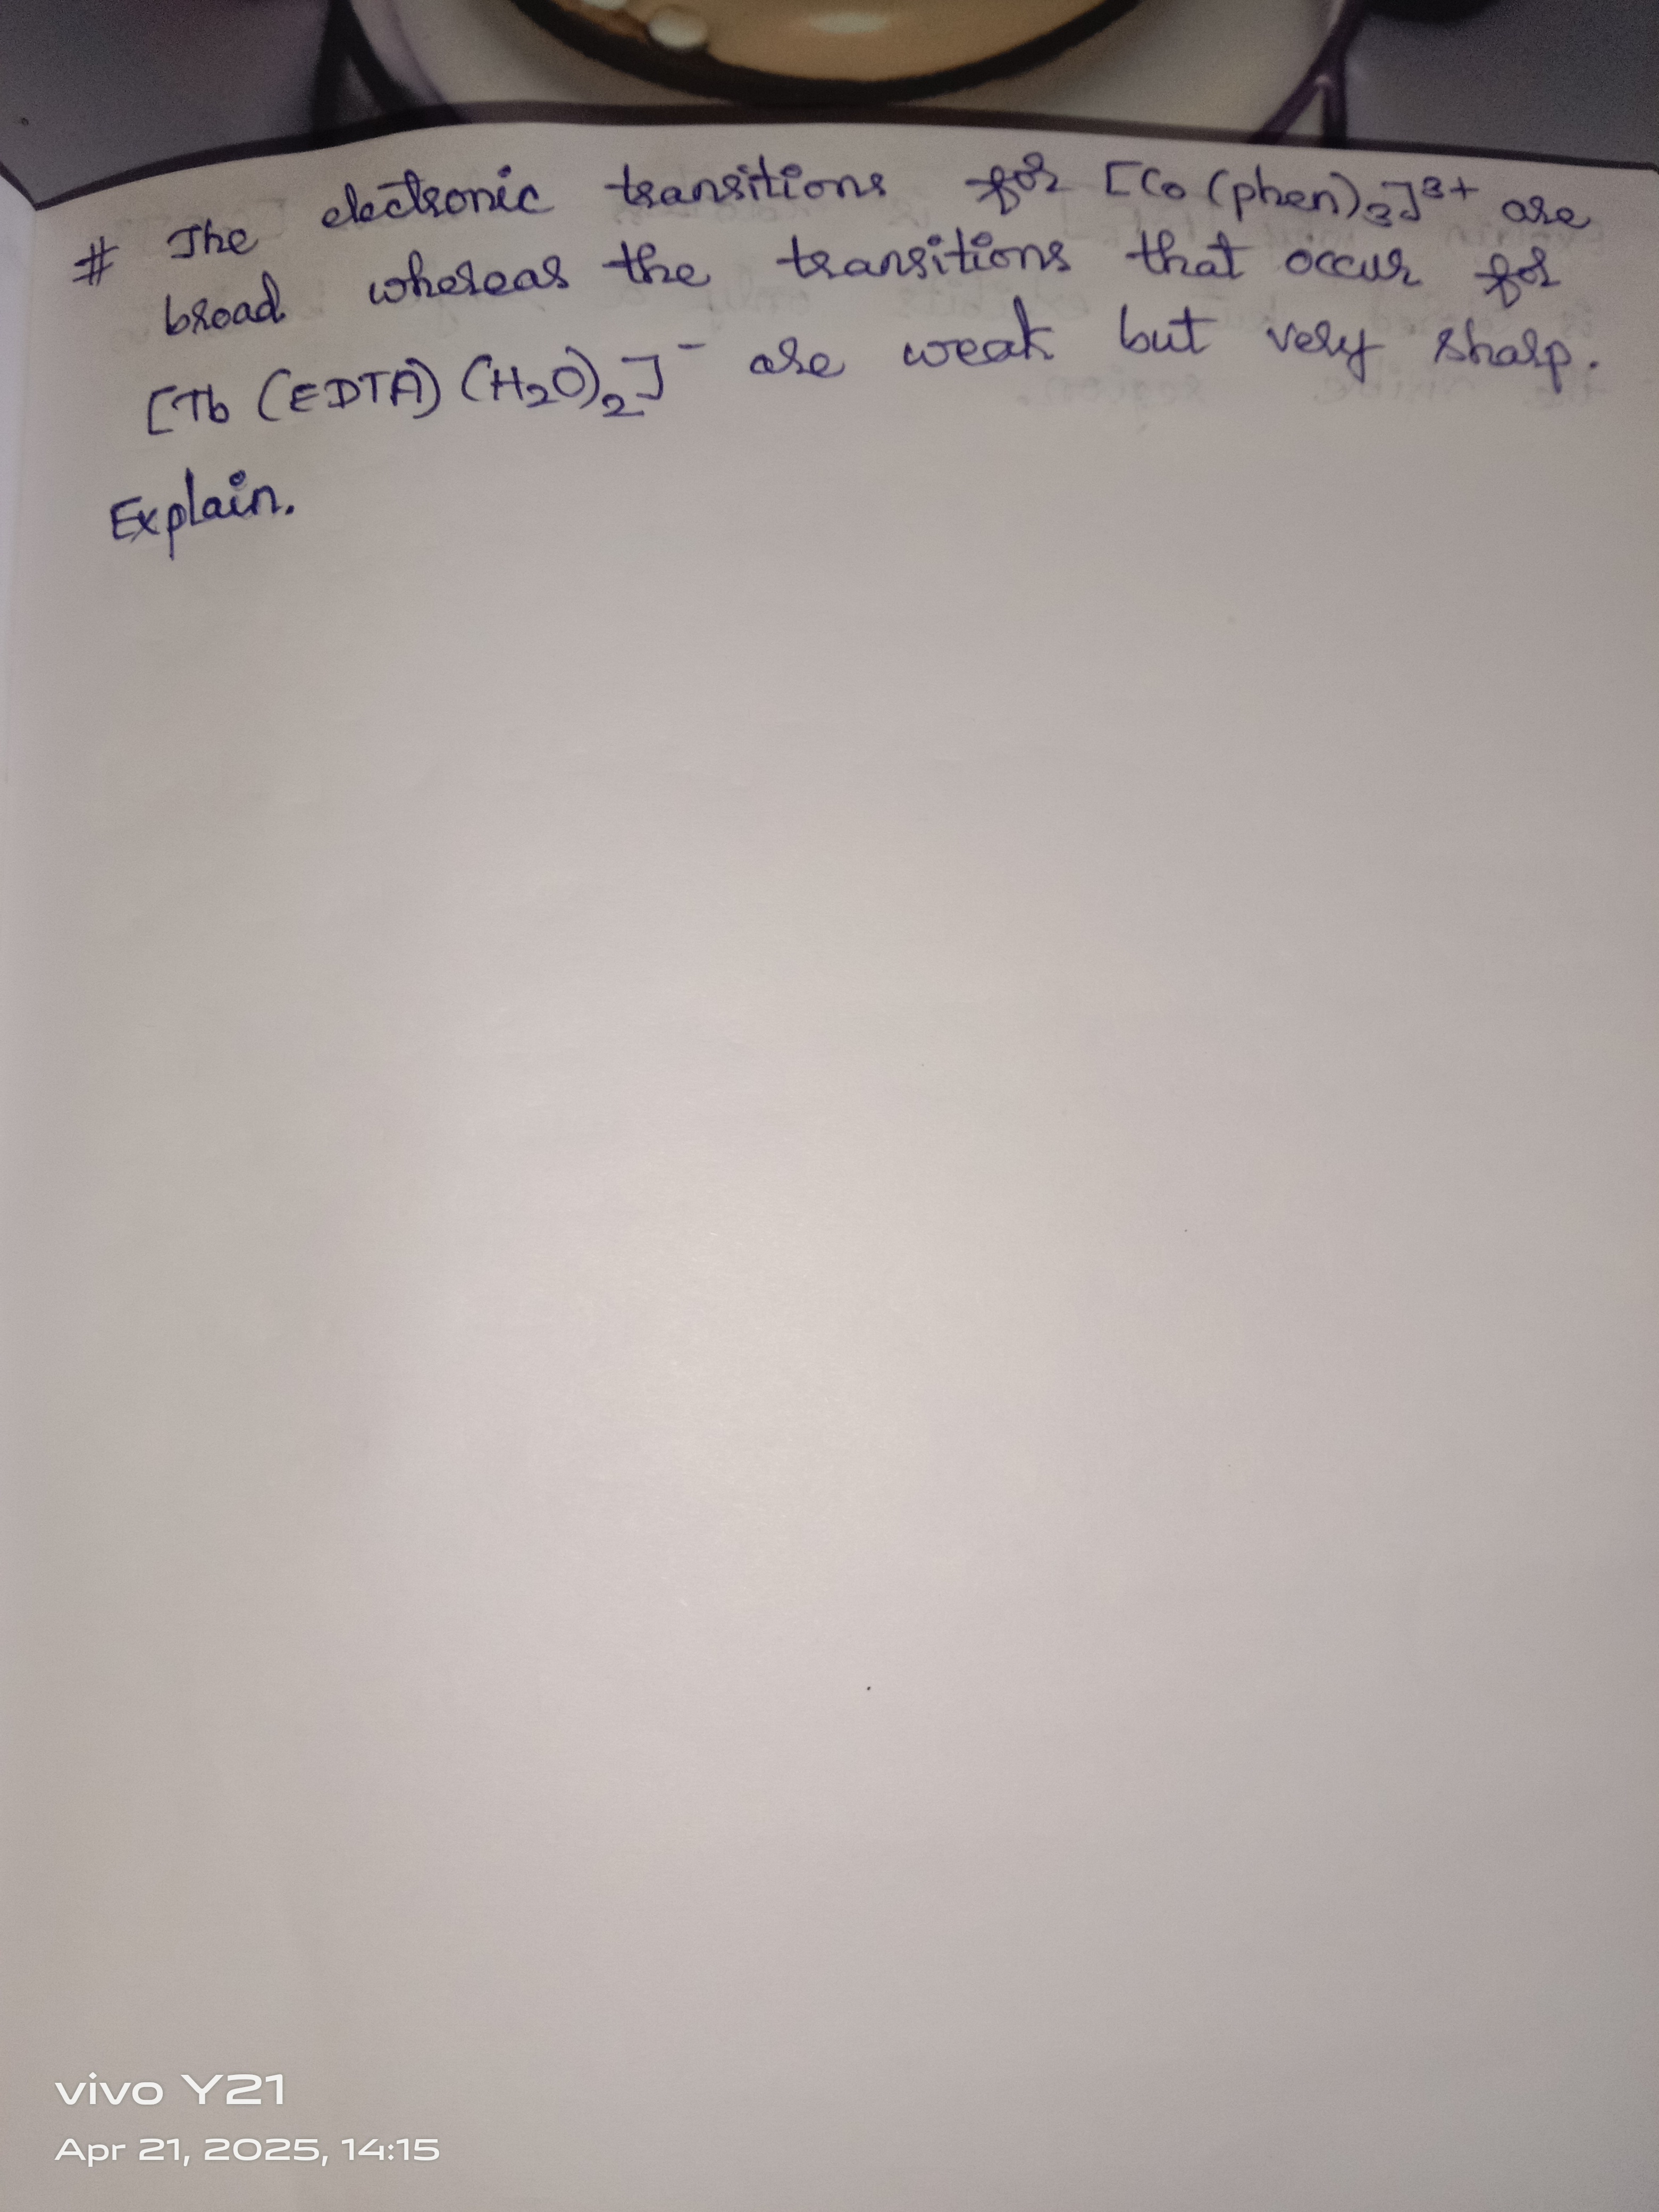 # The electronic transitions for [Co(phen)₃]³⁺ are
broad whereas the transitions that occur for
[Tb (EDTA) (H₂O)₂]⁻ are weak but very sharp.
Explain.
vivo Y21
Apr 21, 2025, 14:15